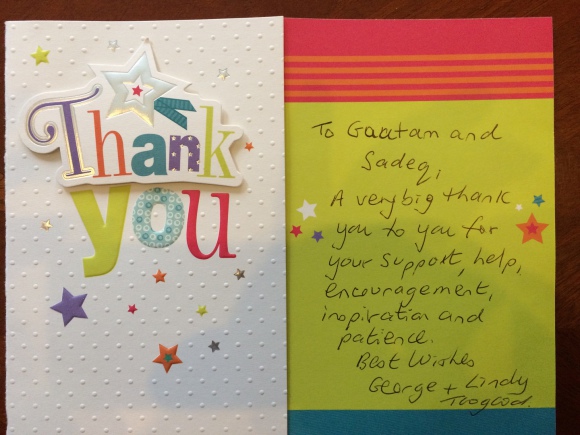 Thank
you
To Gautam and
Sadeq,
A very big thank
you to you for
your support, help,
encouragement,
inspiration and
patience.
Best Wishes
George + Lindy
Toogood.